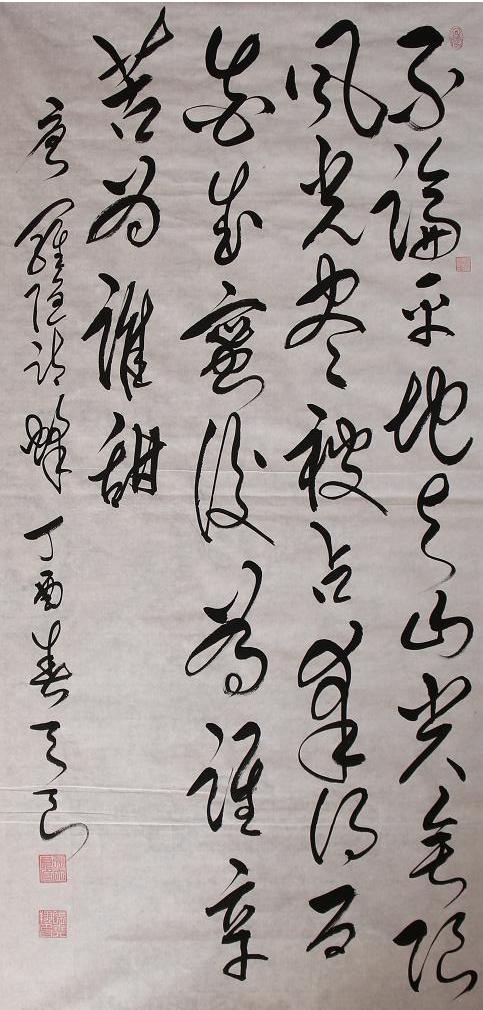 不論平地与山尖無限
風光尽被占采得百
花成蜜後為誰辛
苦為誰甜
唐羅隐詩蜂丁酉春